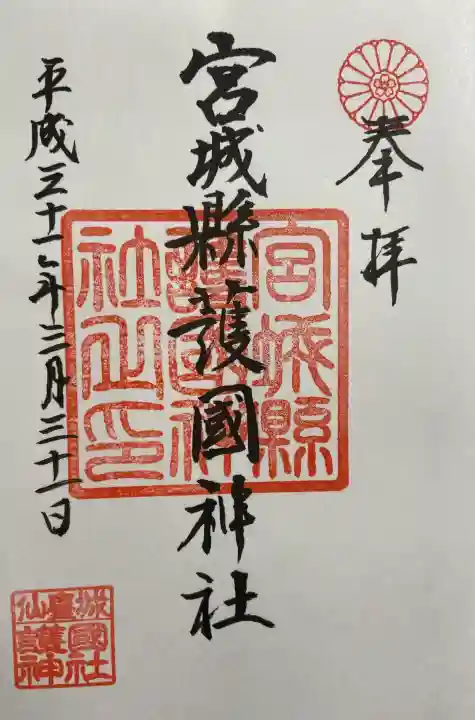 奉拝
宮城縣護國神社
宮城縣
護國神
社之印
平成三十一年三月三十一日
仙臺城
護國
神社